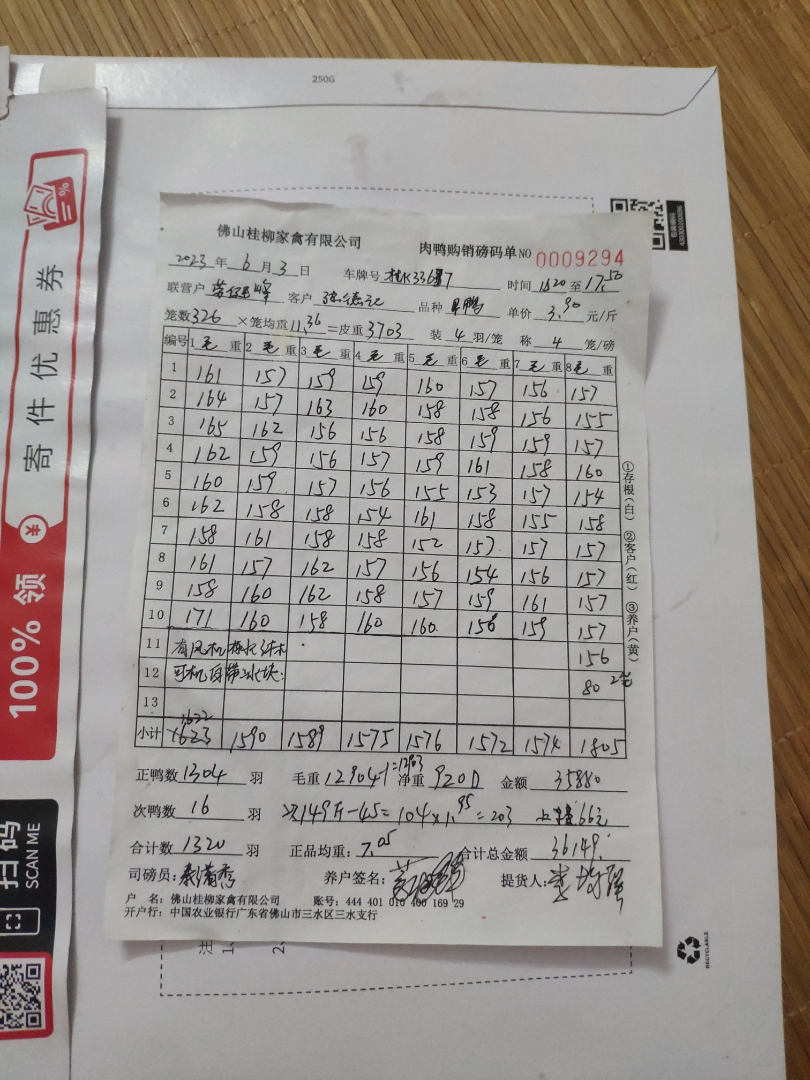 250G
寄件优惠券
100% 领
扫码
SCAN ME
佛山桂柳家禽有限公司
肉鸭购销磅码单 NO 0009294
2023 年 6 月 3 日 车牌号 桂K33687 时间 1620 至 17.50
联营户 峰 客户 品种 单价 3.90 元/斤
笼数 326 ×笼均重 11.36 =皮重 3703 装 4 羽/笼 称 4 笼/磅
编号 1 毛 重 2 毛 重 3 毛 重 4 毛 重 5 毛 重 6 毛 重 7 毛 重 8 毛 重
1 161 157 159 159 160 157 156 157
2 164 157 163 160 158 158 156 155
3 165 162 156 156 158 159 159 157
4 162 159 156 157 159 161 158 160
5 160 159 157 156 155 153 157 154
6 162 158 158 154 161 158 155 158
7 158 161 158 158 152 157 157 157
8 161 157 162 157 156 154 156 157
9 158 160 162 158 157 159 161 157
10 171 160 158 160 160 156 159 157
11 有风机 156
12 司机自带冰块 80 2笼
13
1622
小计 1623 1590 1589 1575 1576 1572 1574 1805
正鸭数 1304 羽 毛重 12904-1=12903 净重 9200 金额 35880
次鸭数 16 羽 次149斤-45=104×1.95=203 66元
合计数 1320 羽 正品均重: 7.05 合计总金额 36149.
司磅员: 养户签名: 提货人:
户 名: 佛山桂柳家禽有限公司 账号: 444 401 010 400 169 29
开户行: 中国农业银行广东省佛山市三水区三水支行
①存根(白) ②客户(红) ③养户(黄)
注
1.
2.
RECYCLABLE